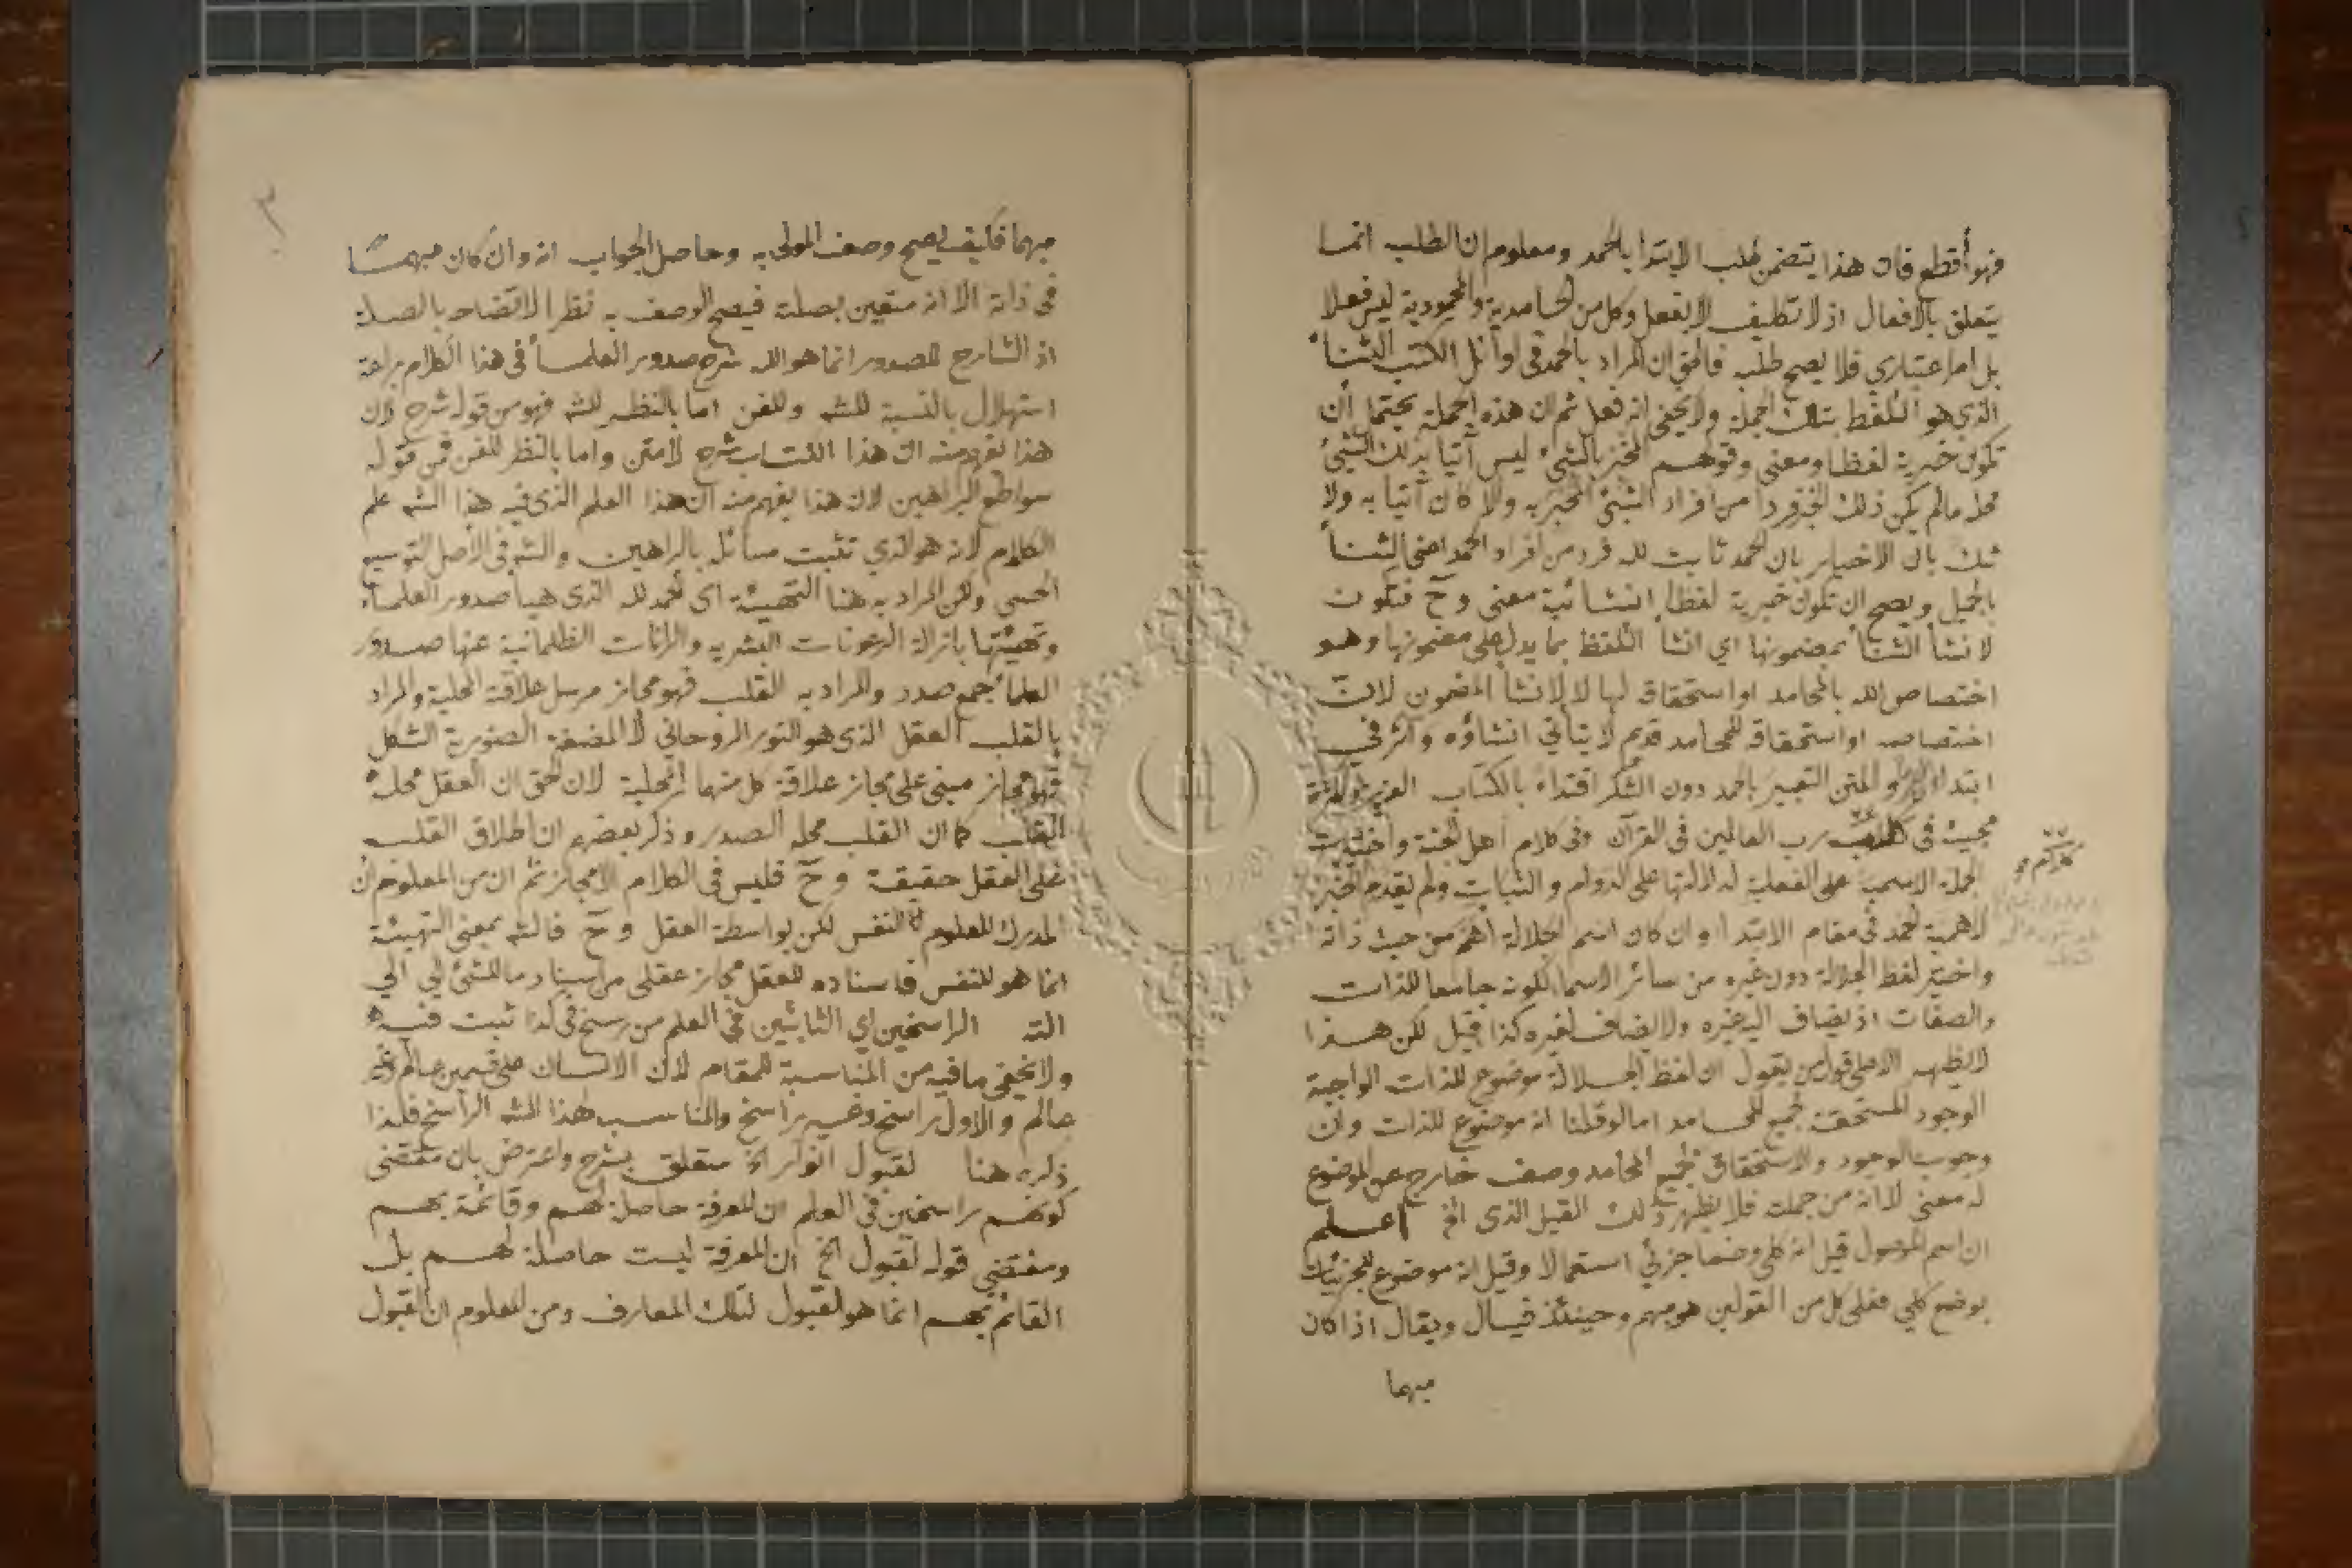 فهو أقطع فان هذا يتضمن طلب الابتدا بالحمد ومعلوم ان الطلب انما
يتعلق بالافعال اذ لا تكليف الا بفعل وكل من الحامدية والمحمودية ليس فعلا
بل امر اعتباري فلا يصح طلبه فالحق ان المراد بالحمد في اوائل الكتب الثناء
الذي هو التلفظ بتلك الجملة ولا يخفى انه فعل ثم ان هذه الجملة يحتمل أن
تكون خبرية لفظا ومعنى وقوهم المخبر بالشئ ليس آتيا بذلك الشئ
محله مالم يكن ذلك الخبر فردا من افراد الشئ المخبر به والا كان آتيا به ولا
شك بان الاخبار بان الحمد ثابت لله فرد من افراد الحمد اعنى الثناء
بالجميل ويصح ان تكون خبرية لفظا انشائية معنى وح فتكون
لانشا الثنا بمضمونها اي انشا التلفظ بما يدل على مضمونها وهو
اختصاص الله بالمحامد او استحقاقه لها لا لانشا المضمون لانّ
اختصاصه او استحقاقه للمحامد قديم لا يتأتي انشاؤه وآثر في
ابتدا المتن التعبير بالحمد دون الشكر اقتداء بالكتاب العزيز
مجيئه في رب العالمين في القرآن وفى كلام اهل الجنة واختيرت
كلام
الجملة الاسمية على الفعلية لدلالتها على الدوام والثبات ولم يقدم الخبر
لاهمية الحمد في مقام الابتدا وان كان اسم الجلالة اهم من حيث ذاته
واختير لفظ الجلالة دون غيره من سائر الاسما لكونه جامعا للذات
والصفات اذ يضاف اليه غيره ولا يضاف لغيره كذا قيل لكن هذا
لا يظهر الا على قول من يقول ان لفظ الجلالة موضوع للذات الواجبة
الوجود المستحقة لجميع المحامد اما لو قلنا انه موضوع للذات وان
وجوب الوجود والاستحقاق لجميع المحامد وصف خارج عن الموضوع
له معنى لا انه من جملته فلا يظهر ذلك القيل الذى الخ اعلم
ان اسم الموصول قيل انه كلي وضعا جزئي استعمالا وقيل انه موضوع للجزئيات
بوضع كلي فعلى كل من القولين هو مبهم وحينئذ فيسال ويقال اذا كان
مبهما
٣
مبهما فكيف يصح وصف المولى به وحاصل الجواب انه وان كان مبهما
في ذاته الا انه متعين بصلته فيصح الوصف به نظرا لاتضاحه بالصلة
اذ الشارح للصدور انما هو الله شرح صدور العلما في هذا الكلام براعة
استهلال بالنسبة للشه وللفن اما بالنظر للشه فهو من قوله شرح لان
هذا يفهم منه ان هذا الكتاب شرح لا متن واما بالنظر للفن فمن قوله
سواطع البراهين لان هذا يفهم منه ان هذا العلم الذى فيه هذا الشه علم
الكلام لانه هو الذي تثبت مسائله بالبراهين والشه في الاصل التوسيع
الحسي ولكن المراد به هنا التهيئة اى الحمد لله الذى هيأ صدور العلماء
وتهيئتها بازالة الرعونات البشريه والرانات الظلمانية عنها صدور
العلما جمع صدر والمراد به القلب فهو مجاز مرسل علاقته المحلية والمراد
بالقلب العقل الذى هو النور الروحاني لا المضغة الصنوبرية الشكل
فهو مجاز مبنى على مجاز علاقة كل منهما المحلية لان الحق ان العقل محله
القلب كما ان القلب محله الصدر وذكر بعضهم ان اطلاق القلب
على العقل حقيقة وح فليس في الكلام الا مجاز ثم ان من المعلوم ان
المدرك للعلوم النفس لكن بواسطة العقل وح فالشه بمعنى التهيئة
انما هو للنفس فاسناده للعقل مجاز عقلي من اسناد ما للشئ الي
الته الراسخين اي الثابتين في العلم من رسخ في كذا ثبت فيه
ولا يخفى ما فيه من المناسبة للمقام لان الانسان على قسمين عالم وغير
عالم والاول راسخ وغير راسخ والمناسب لهذا الشه الراسخ فلذا
ذكره هنا لقبول انوار الخ متعلق بشرح واعترض بان مقتضى
كونهم راسخين في العلم ان المعرفة حاصلة لهم وقائمة بهم
ومقتضى قوله لقبول الخ ان المعرفة ليست حاصلة لهم بل
القائم بهم انما هو القبول لتلك المعارف ومن المعلوم ان القبول